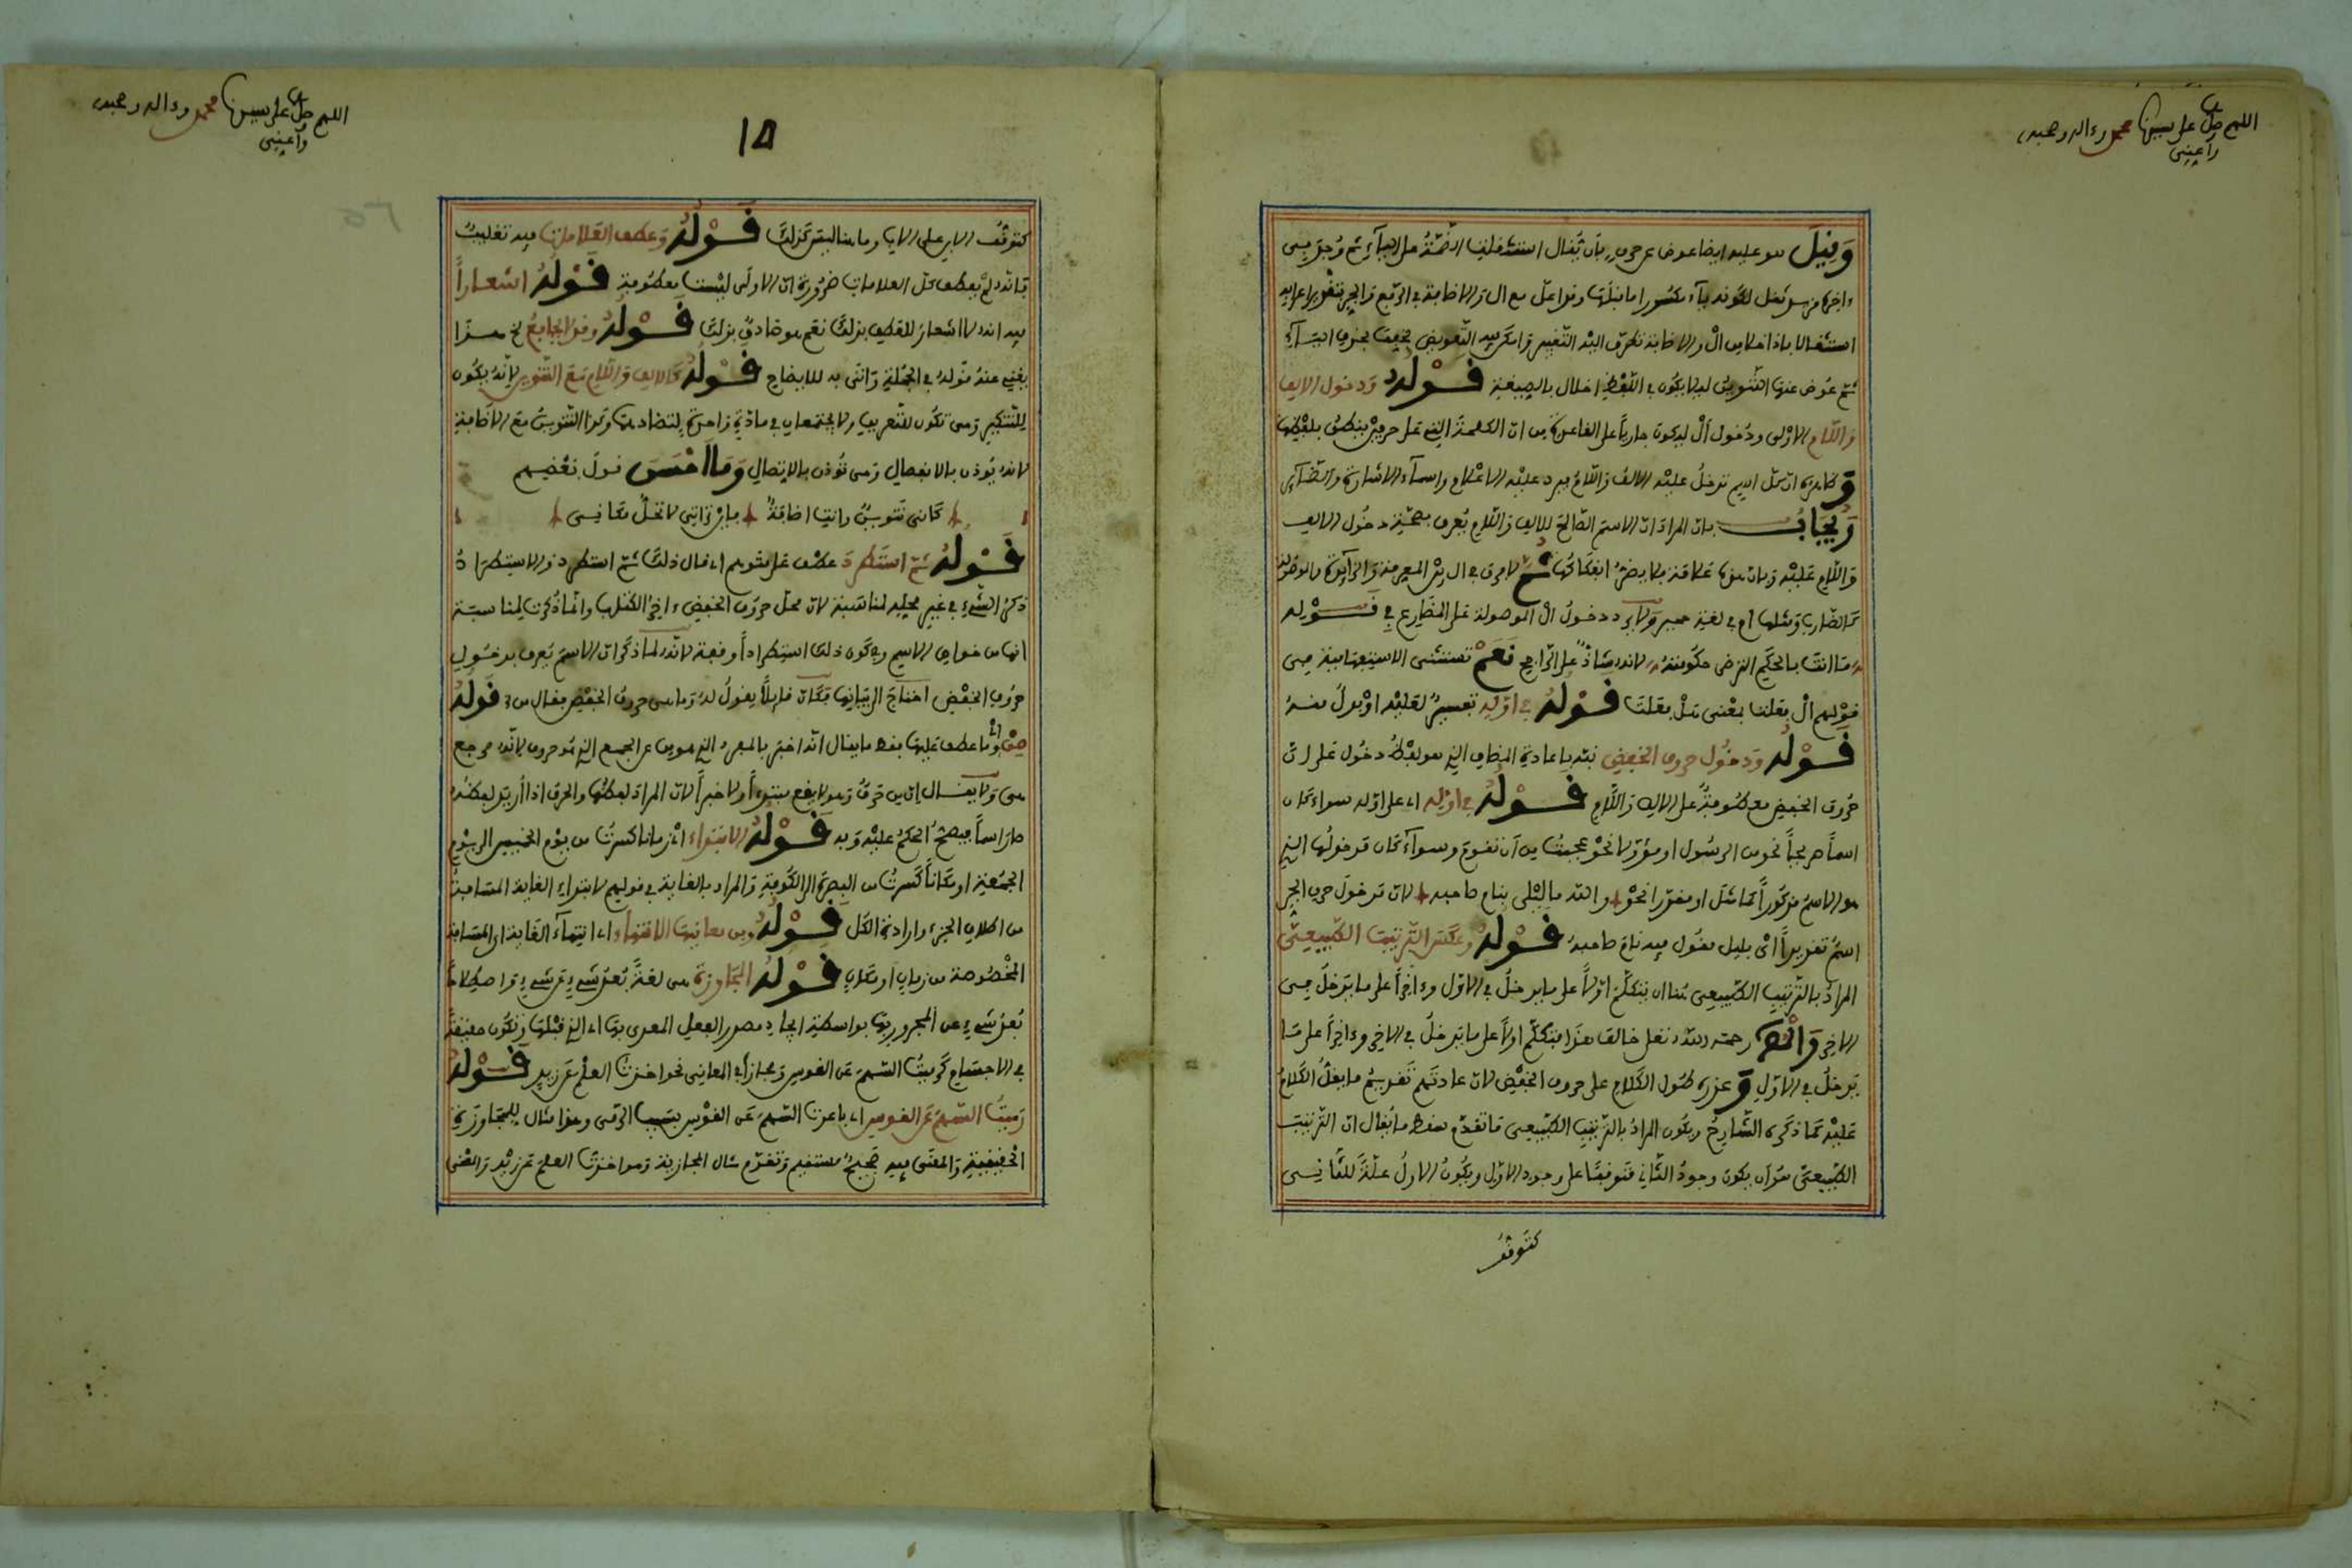 اللهم صل على سيدنا محمد وءاله وصحبه
وأعني
وَقِيلَ هو عليه ايضا عوض عن حرف بأن يُقال استثقلت الضّمّةُ على اليآء ثم وُجد في
ءاخره مزيد ثقل لكونه يآء مكسورا ما قبلها
ثم عُوض عنها التنوين ليلا يكون في اللفظ اخلال بالصيغة قَوْلُهُ وَدخول الالف
وَاللّام الاولى ودُخول أل ليكون جارياً على القاعدة من ان الكلمة التي على حرفين ينطق بلفظها
وَظاهره ان كل اسم تدخلُ عليْه الالف وَاللّامُ فيرد عليْه الاعْلام واسمآء الاشارة والضّمآئر
وَيُجَابُ بان المرادَ ان الاسمَ الصّالحَ للالف وَاللّام يُعرف بصحّة دخُول الالف
وَاللّام عَليْه وَبان هذه علامة فلا يضرّ انفكاكها ثُمَّ لا فرق في ال بيْن المعرفة وَالزّآئدة والموصولة
كالضّارب وَمثلها ام في لغة حمير وَلا يرد دخولُ ال الموصولة على المضارع في قَوْله
مَا انت بالحكَم الترضى حكُومتهُ لانه شاذّ على الرّاجح نَعَمْ تستثنى الاستفهامية في
قوْلهم ألْ فعلت بمَعْنى هَلْ فعلتَ قَوْلُهُ في اوّله تفسيرٌ لعَليْه اوْ بدلٌ منهُ
قَوْلُهُ وَدخُول حروف الخفض نبّه باعادة المضاف الذي هو لفظُ دخُول على ان
حُروف الخفض معطُوفةٌ على الالف وَاللّام قَوْلُهُ في اوّله اى على اوّله سواء كان
اسماً صريحاً نحو من الرسُول او مؤوّلا نحْوَ عجبتُ من أن تقوم وسوآء كان مدخولُها الذي
هو الاسمُ مذكوراً كما مثل او مقدّرا نحْوَ والله ما ليْلى بنام صاحبه لانّ مَدخولَ حرف الجر
اسمٌ تقديراً اىْ بليل مقُول فيه نام صاحبهُ قَوْلُهُ وعكس التّرتيبَ الطّبيعيّ
المرادُ بالتّرتيب الطّبيعي هُنا ان يتكلّمَ اوّلاً على ما يدخلُ في الاوّل وءاخراً على ما يَدخلُ في
الاخر وَالشّارح رحمه اللّه تعلى خالف هذا فتكلّم اولاً على ما يَدخلُ في الاخر وءاخراً على مَا
يَدخلُ في الاوّل وَعذره طُول الكَلام على حروف الخفْض لانّ عادتَهم تَقديمُ ما يقلّ الكَلامُ
عَليْه كما ذكره الشّارحُ ويكُون المرادُ بالتّرتيب الطّبيعي مَا تقدّم سقط ما يُقال ان التّرتيبَ
الطّبيعيّ هوَ ان يكونَ وجودُ الثّاني مَتوقفًا على وجود الاوّل ويكُونُ الاولُ علّةً للثّاني
كتوقفُ
اللهم صل على سيدنا محمد وءاله وصحبه
وأعني
١٥
كتوقفُ الابن على الاب وما هنا ليسَ كذلكَ قَوْلُهُ وَعطف العَلامات فيه تغليبٌ
فانّه لمْ يعطف كل العلامات ضرُورة ان الاولى ليْست معطُوفة قَوْلُهُ اشعاراً
فيه انه لا اشعارَ للعَطف بذلكَ نعَم هو صَادقٌ بذلكَ قَوْلُهُ وقولا جامعٌ الخ هذا
يغني عنهُ قولهُ في الجُملة وَاتى به للايضاح قَوْلُهُ كالالف وَاللّام مَعَ التّنوين لانّه يكُون
للتّنكير وَهي تكُون للتّعريف ولا يجتمعان في مادّة وَاحدة لتضادهمَا وكذا التّنوينُ معَ الاضافة
لانه يُوذن بالانفصال وَهي تُوذن بالاتصال وَمَا اَحْسَنَ قولَ بَعْضهم
كَأني تَنوينٌ وانتَ اضافةٌ فايْن تَرَانِي لا تحلُّ مَكَانِي
قَوْلُهُ ثمّ استَطردَ عطْف على متوهم اى قال ذلكَ ثمّ استطرد والاستطرَادُ
ذكرُ الشّيْء في غير محله لمناسَبة لانّ محلّ حروف الخفض ءاخِرُ الكتَاب وانّما ذُكرت لمناسبَة
انها من خواص الاسم وَفي كَون ذلك استطراداً وقفة لانّه لما ذكرَ ان الاسمَ يُعرف بدخُول
حرُوف الخفْض احتاجَ الى بيَانها فكَأنّ قائلاً يقولُ لهُ وَما هي حروفُ الخفْض فقال من قَوْلُهُ
مِنْ وما عطف عَليْها سقط ما يقال انّه اخبرَ بالمفرد الذي هو من عن الجمع الذي هُو حروف لانّه مرجع
هي وَلا يقال إن من حَرفٌ وَهو لا يقع مبتدءاً ولا خبراً لانّ المرادَ لفظُها والحرف اذا أُريدَ لفظهُ
صَارَ اسماً فيصحّ الحكمُ عليْه وَبه قَوْلُهُ الابتداء اىْ زمانا كسرتُ من يوْم الخميس الى يوْم
الجمُعة او مكَاناً كَسرتُ من البصرة الى الكُوفة وَالمراد بالغاية في قولهم لابتداء الغاية المسَافةُ
من اطلاق الجزء وارادة الكل قَوْلُهُ ومن معانيهَا الانتهاء اى انتهآء الغَاية اى المسَافة
المخْصُوصة من زمان او مكَان قَوْلُهُ المُجَاوزة هي لغةً بُعدُ شَيْءٍ عَن شَيْءٍ وَاصطلاحًا
بُعدُ شَيْء عن المجرور بهَا بواسطة ايجَاد مصدر الفعل المعدى بهَا اى الذي قبْلهَا وَتكُون حقيقةً
في الاجسَام كَرميْتُ السّهمَ عن القوس وَمجازاً في المعاني نحو اخذتُ العلْمَ عَن زيد قَوْلُهُ
رَميتُ السّهمَ عَن القوس اى باعدتُ السّهمَ عَن القوْس بسَبب الرّمى وهذا مثال للمجَاوزة
الحَقيقيّة وَالمعنَى فيه صَحيحٌ مستقيم وَتقدّم مثال المجازية وَهو اخذتُ العلم عَن زيْد وَالمعْنى